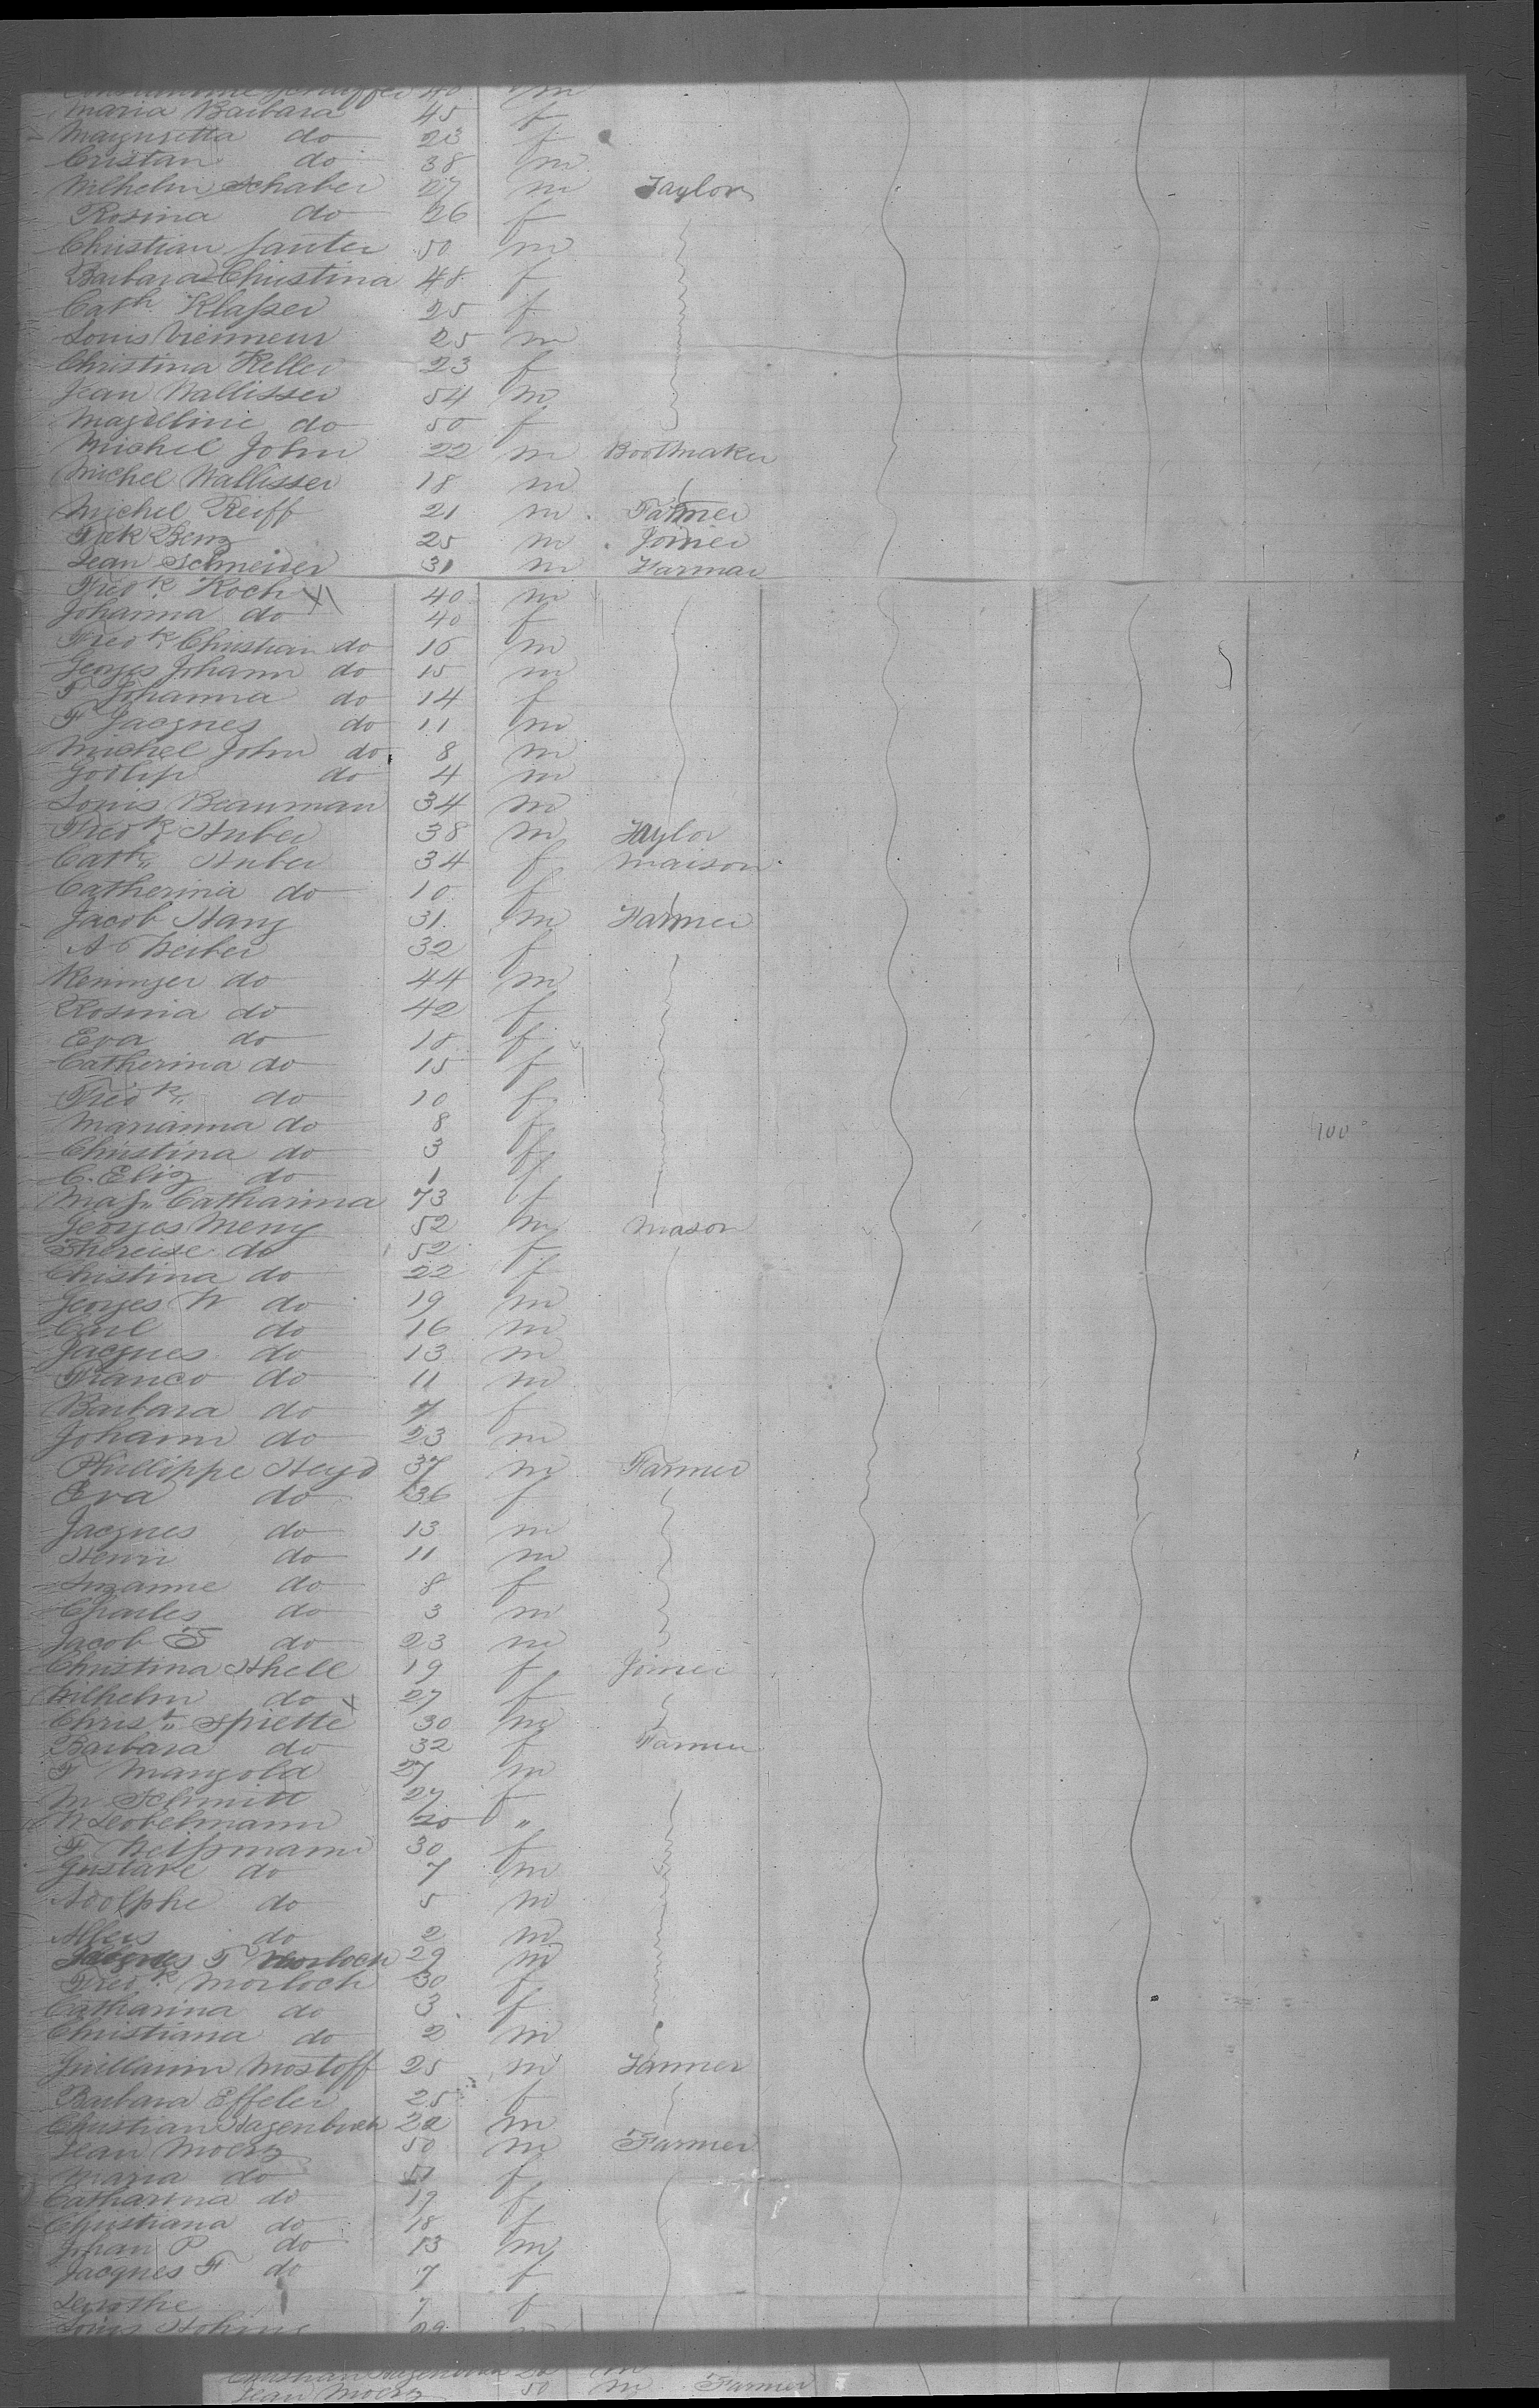 40 m
Maria Barbara 45 f
Maguretta do 23 f
Cristan do 38 m
Wilhelm Schaber 27 m Taylor
Rosina do 26 f
Christian Janter 50 m
Barbara Christina 48 f
Cath Klasser 25 f
Louis 25 m
Christina Keller 23 f
Jean Wallisser 54 m
Magdeline do 50 f
Michel John 22 m Bootmaker
Michel Wallisser 18 m
Michel Reiff 21 m Farmer
Fick Benz 25 m Joiner
Jean Schneider 31 m Farmar
Fredk Koch 40 m
Johanna do 40 f
Fredk Christian do 16 m
Georges Johann do 15 m
F Johanna do 14 f
F Jacques do 11 m
Michel John do 8 m
Gotlip do 4 m
Louis Beauman 34 m
Fredk Huber 38 m Taylor
Cath Huber 34 f Maison
Catherina do 10 f
Jacob Hany 31 m Farmer
A Weiber 32 f
Reninger do 44 m
Rosina do 42 f
Eva do 18 f
Catherina do 15 f
Fredk do 10 f
Marianna do 8 f
Christina do 3 f
C. Eliz do 1 f
Mag Catharina 73 f
Georges Meny 52 m Mason
Thereise do 52 f
Christina do 22 f
Georges W do 19 m
Carl do 16 m
Jacques do 13 m
Franco do 11 m
Barbara do 7 f
Johann do 23 m
Phillippe Heyd 37 m Farmer
Eva do 36 f
Jacques do 13 m
Henri do 11 m
Suzanne do 8 f
Charles do 3 m
Jacob F do 23 m
Christina Shell 19 f Joiner
Wilhelm do 27 f
Christ Spiette 30 m
Barbara do 32 f Farmer
F Mangold 27 m
M Schmitt 27 f
N Leobelmann 20 "
F Weissmann 30 f
Gustave do 7 m
Adolphe do 5 m
do 2 m
Jacques F Morloch 29 m
Fredk Morloch 30 f
Catharina do 3 f
Christiana do 2 m
Guillaum Mostoff 25 m Farmer
Barbara Effeler 25 f
Christian Hagenbuch 22 m
Jean Moerz 50 m Farmer
Maria do 51 f
Catharina do 19 f
Christiana do 18 f
Johan P do 13 m
Jacques F do 7 f
7 f
Louis 29
100
Christian Hagenbuch 22 m
Jean Moerz 50 m Farmer